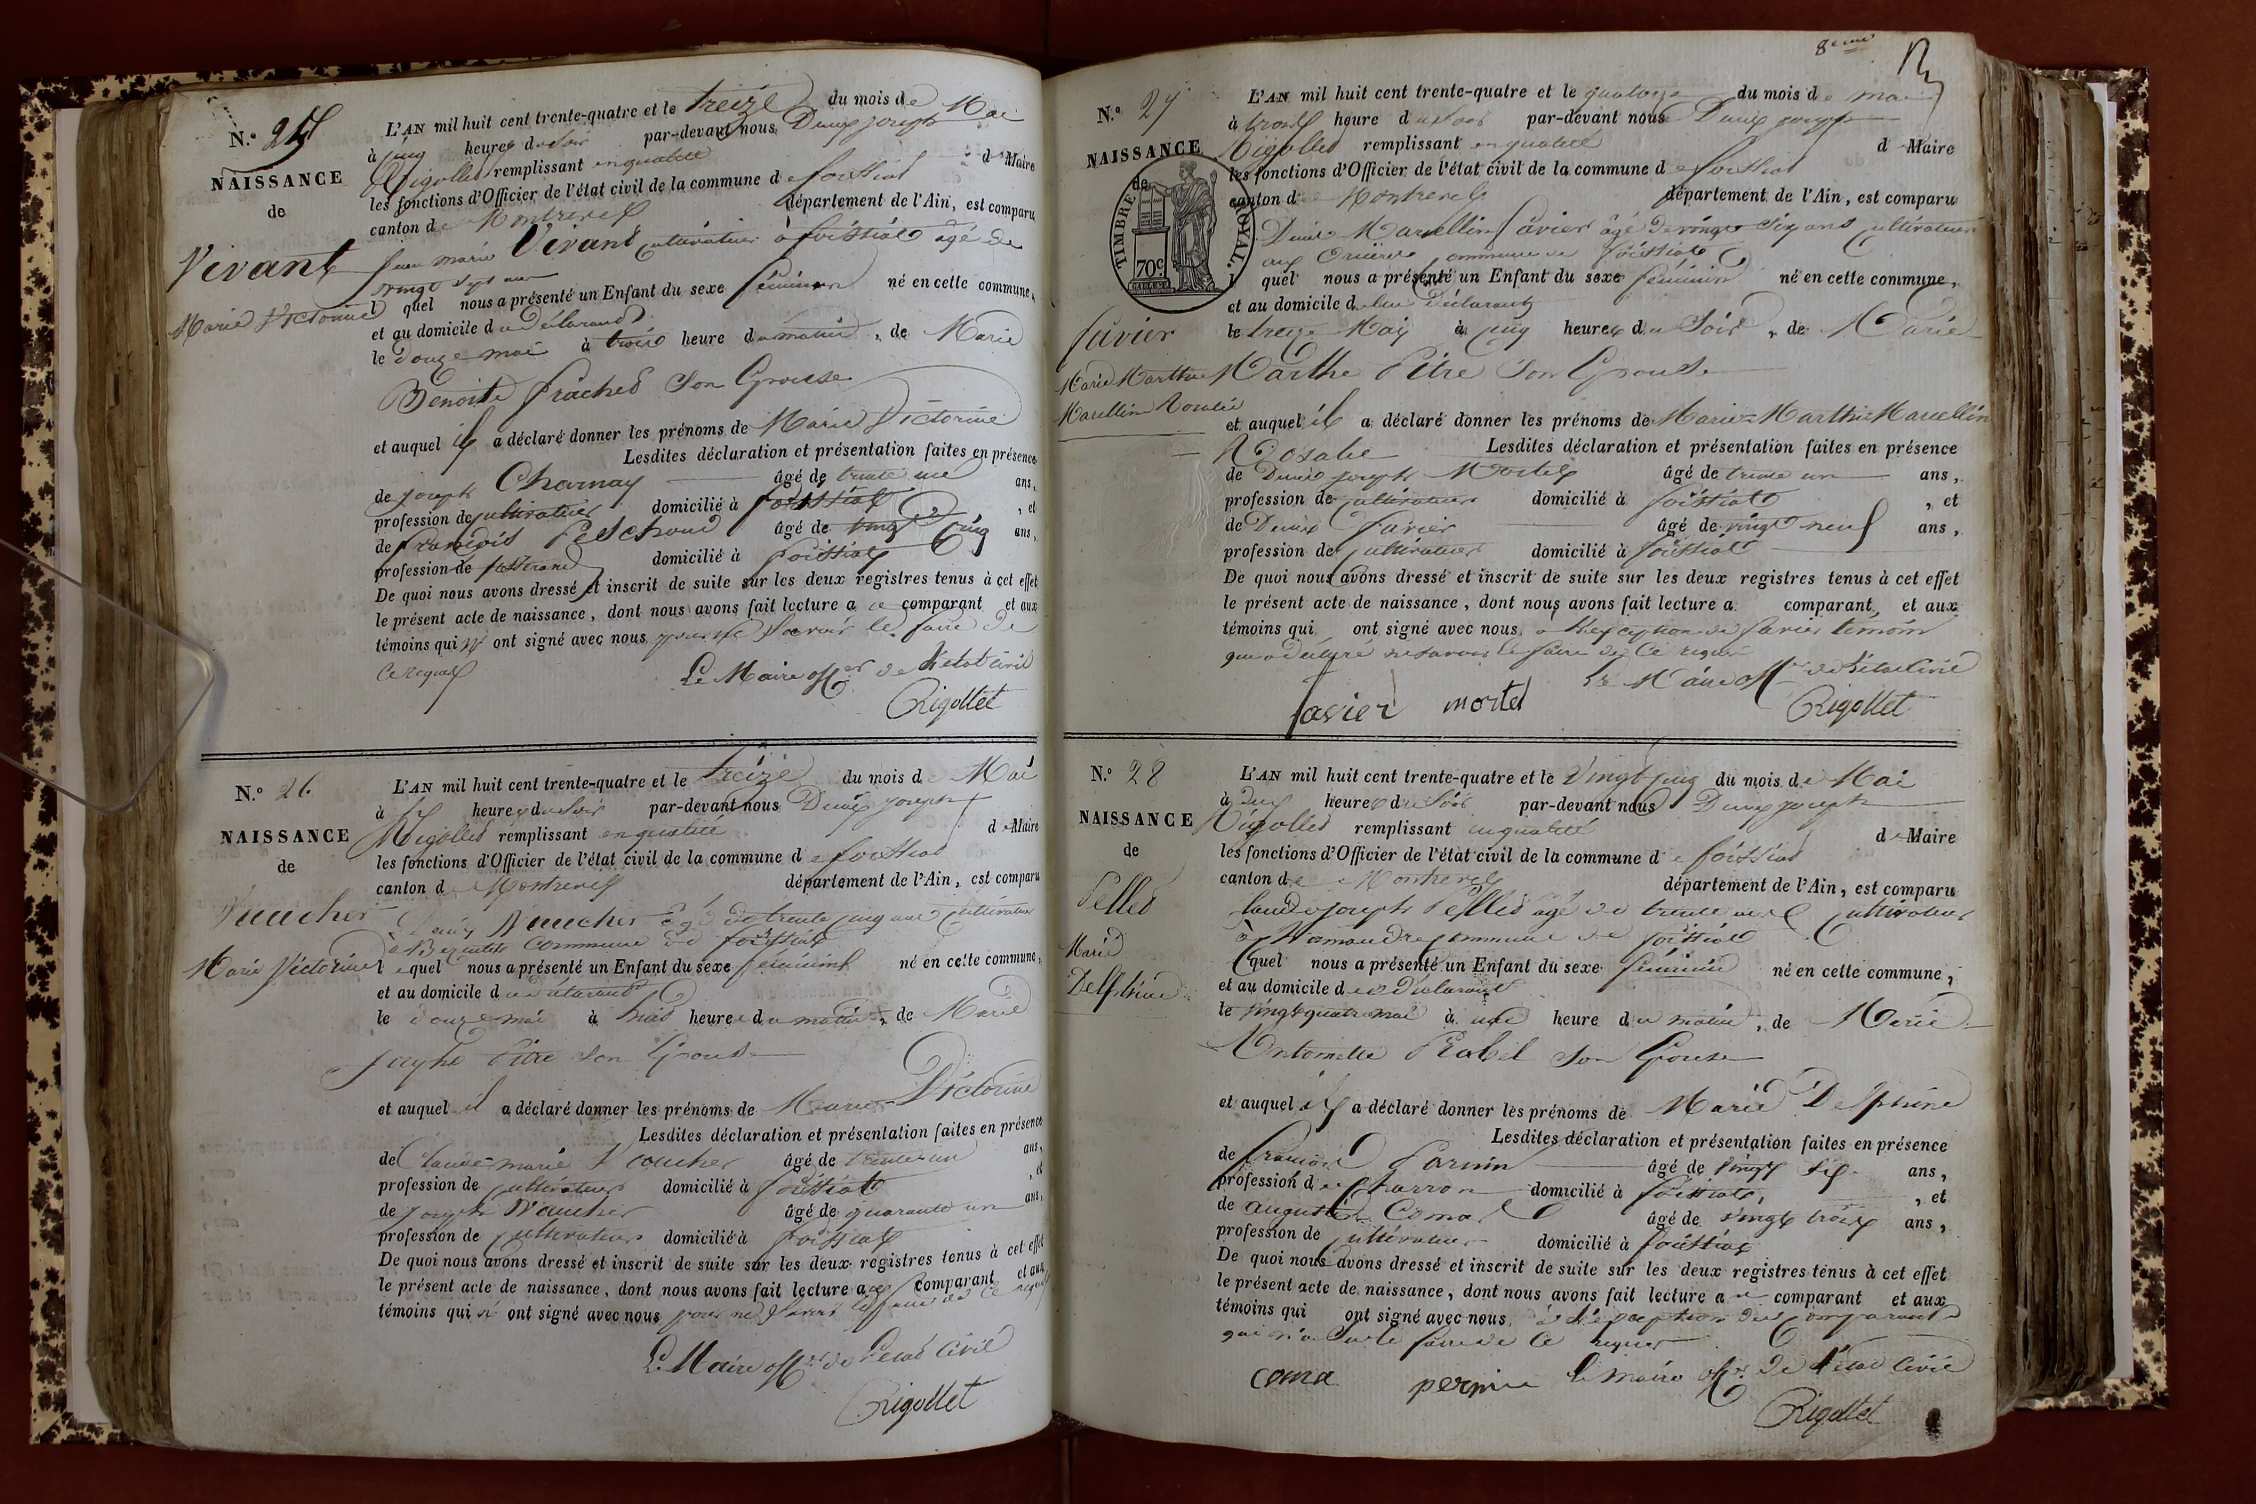 N.º 25
NAISSANCE
de
Vivant
Marie Victorine
L'AN mil huit cent trente-quatre et le treize du mois de Mai
à cinq heures du Soir par-devant nous Denis joseph
Rigollet remplissant en qualité de Maire
les fonctions d'Officier de l'état civil de la commune de foissiat
canton de Montrevel département de l'Ain, est comparu
jean marie Vivant cultivateur à foissiat âgé de
vingt sept ans
lequel nous a présenté un Enfant du sexe féminin né en cette commune,
et au domicile du déclarant
le douze mai à trois heure du matin, de Marie
Benoite son Epouse
et auquel il a déclaré donner les prénoms de Marie Victorine
Lesdites déclaration et présentation faites en présence
de joseph Charnay âgé de trente un ans,
profession de cultivateur domicilié à foissiat, et
de françois âgé de vingt cinq ans,
profession de domicilié à foissiat
De quoi nous avons dressé et inscrit de suite sur les deux registres tenus à cet effet
le présent acte de naissance, dont nous avons fait lecture a ce comparant et aux
témoins qui n' ont signé avec nous pour ne Savoir le faire de
ce requis
Le Maire off.er de l'état civil
Rigollet
N.º 26
NAISSANCE
de
Vaucher
Marie Victorine
L'AN mil huit cent trente-quatre et le treize du mois de Mai
à six heures du Soir par-devant nous Denis joseph
Rigollet remplissant en qualité de Maire
les fonctions d'Officier de l'état civil de la commune de foissiat
canton de Montrevel département de l'Ain, est comparu
Denis Vaucher âgé de trente cinq ans cultivateur
à commune de foissiat
lequel nous a présenté un Enfant du sexe féminin né en cette commune,
et au domicile du déclarant
le douze mai à huit heures du matin, de Marie
josephe Pitre son Epouse
et auquel il a déclaré donner les prénoms de Marie Victorine
Lesdites déclaration et présentation faites en présence
de Claude-marie Vaucher âgé de trente un ans,
profession de cultivateur domicilié à foissiat, et
de joseph Vaucher âgé de quarante un ans,
profession de cultivateur domicilié à foissiat
De quoi nous avons dressé et inscrit de suite sur les deux registres tenus à cet effet
le présent acte de naissance, dont nous avons fait lecture aux comparant et aux
témoins qui n' ont signé avec nous pour ne Savoir le faire de ce requis
Le Maire off.er de l'état civil
Rigollet
8eme
N.º 27
NAISSANCE
de
TIMBRE ROYAL.
70c.
favier
Marie Marthe
Marcellin Rosalie
L'AN mil huit cent trente-quatre et le quatorze du mois de mai
à trois heure du Soir par-devant nous Denis joseph
Rigollet remplissant en qualité de Maire
les fonctions d'Officier de l'état civil de la commune de foissiat
canton de Montrevel département de l'Ain, est comparu
Denis Marcellin favier âgé de vingt six ans cultivateur
aux commune de foissiat
lequel nous a présenté un Enfant du sexe féminin né en cette commune,
et au domicile de lui Déclarant
le treize Mai à cinq heures du Soir, de Marie
Marthe Pitre Son Epouse
et auquel il a déclaré donner les prénoms de Marie-Marthe-Marcellin
Rosalie Lesdites déclaration et présentation faites en présence
de Denis joseph Mortel âgé de trente un ans,
profession de cultivateur domicilié à foissiat, et
de Denis favier âgé de vingt neuf ans,
profession de cultivateur domicilié à foissiat
De quoi nous avons dressé et inscrit de suite sur les deux registres tenus à cet effet
le présent acte de naissance, dont nous avons fait lecture a comparant, et aux
témoins qui ont signé avec nous, à l'exception de favier témoin
qui a déclaré ne savoir le faire de ce requis
Le Maire off.er de l'état Civil
favier mortel Rigollet
N.º 28
NAISSANCE
de
Pellet
Marie
Delphine
L'AN mil huit cent trente-quatre et le Vingt cinq du mois de Mai
à deux heures du Soir par-devant nous Denis joseph
Rigollet remplissant en qualité de Maire
les fonctions d'Officier de l'état civil de la commune de foissiat
canton de Montrevel département de l'Ain, est comparu
Claude joseph Pellet âgé de trente ans cultivateur
à commune de foissiat
lequel nous a présenté un Enfant du sexe féminin né en cette commune,
et au domicile de Déclarant
le vingt quatre mai à une heure du matin, de Marie
Antoinette Son Epouse
et auquel il a déclaré donner les prénoms de Marie Delphine
Lesdites déclaration et présentation faites en présence
de françois âgé de vingt six ans,
profession de Charron domicilié à foissiat, et
de auguste Coma âgé de vingt trois ans,
profession de cultivateur domicilié à foissiat
De quoi nous avons dressé et inscrit de suite sur les deux registres tenus à cet effet
le présent acte de naissance, dont nous avons fait lecture a comparant et aux
témoins qui ont signé avec nous, à l'exception du comparant
qui n'a Su le faire de ce requis
coma le maire off.er de l'état civil
Rigollet